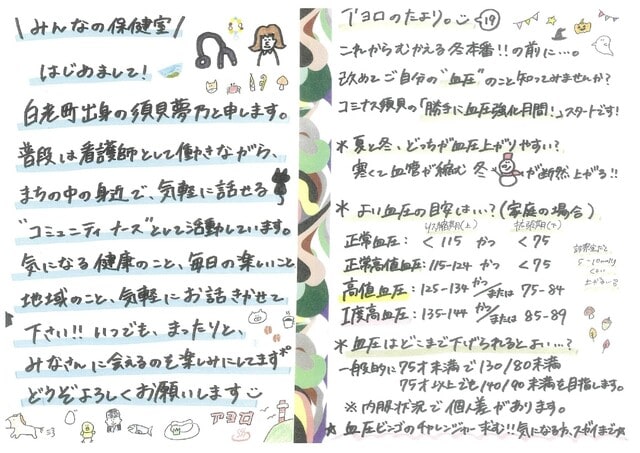 \みんなの保健室/
はじめまして!
白老町出身の須貝夢乃と申します。
普段は看護師として働きながら、
まちの中の身近で、気軽に話せる
"コミュニティナース"として活動しています。
気になる健康のこと、毎日の楽しいこと
地域のこと、気軽にお話きかせて
下さい!!いつでも、まったりと、
みなさんに会えるのも楽しみにしてます*
どうぞよろしくお願いします
アヨロ
アヨロのたより。 19
これからむかえる冬本番!!の前に…。
改めてご自分の"血圧"のこと知ってみませんか?
コミナス須貝の「勝手に血圧強化月間!」スタートです!
*夏と冬、どっちが血圧上がりやすい?
寒くて血管が縮む 冬 が断然上がる!!
*よい血圧の目安はい…?(家庭の場合)
収縮期(上) 拡張期(下)
正常血圧: < 115 かつ < 75
正常高値血圧: 115-124 かつ < 75
高値血圧: 125-134 かつ/または 75-84
I度高血圧: 135-144 かつ/または 85-89
診察室だと
5-10mmHg
くらい
*血圧はどこまで下げられるとよい…?
一般的に75才未満で130/80未満
75才以上でも140/90未満を目指します。
※内服状況で個人差があります。
★血圧ビンゴのチャレンジャー求む!!気になる方、スガイまで☆